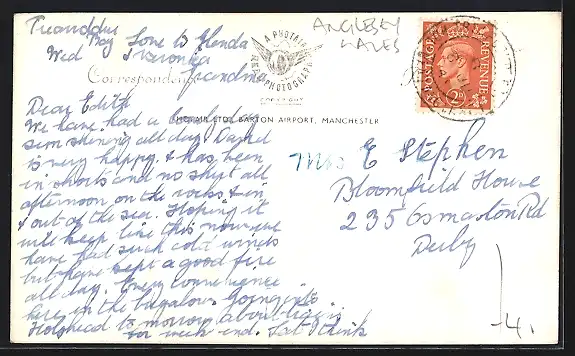 Treanddur
Bay Love to Glenda
Wed & Veronica
Grandma
Correspondence
A PHOTATE
REAL PHOTOGRAPH
COPYRIGHT
ANGLESEY
WALES
POSTAGE REVENUE
2D
BARTON AIRPORT, MANCHESTER
Dear Edith
We have had a lovely day
sun shining all day. David
is very happy & has been
in shorts and no shirt all
afternoon on the rocks & in
& out of the sea. Hoping it
will keep like this now, we
have had such cold winds
but have kept a good fire
all day. Every convenience
here in the bugalow. Going to
Holyhead to morrow
for week end. Lat I think
Mrs E Stephen
Bloomfield House
235 Osmaston Rd
Derby
4.